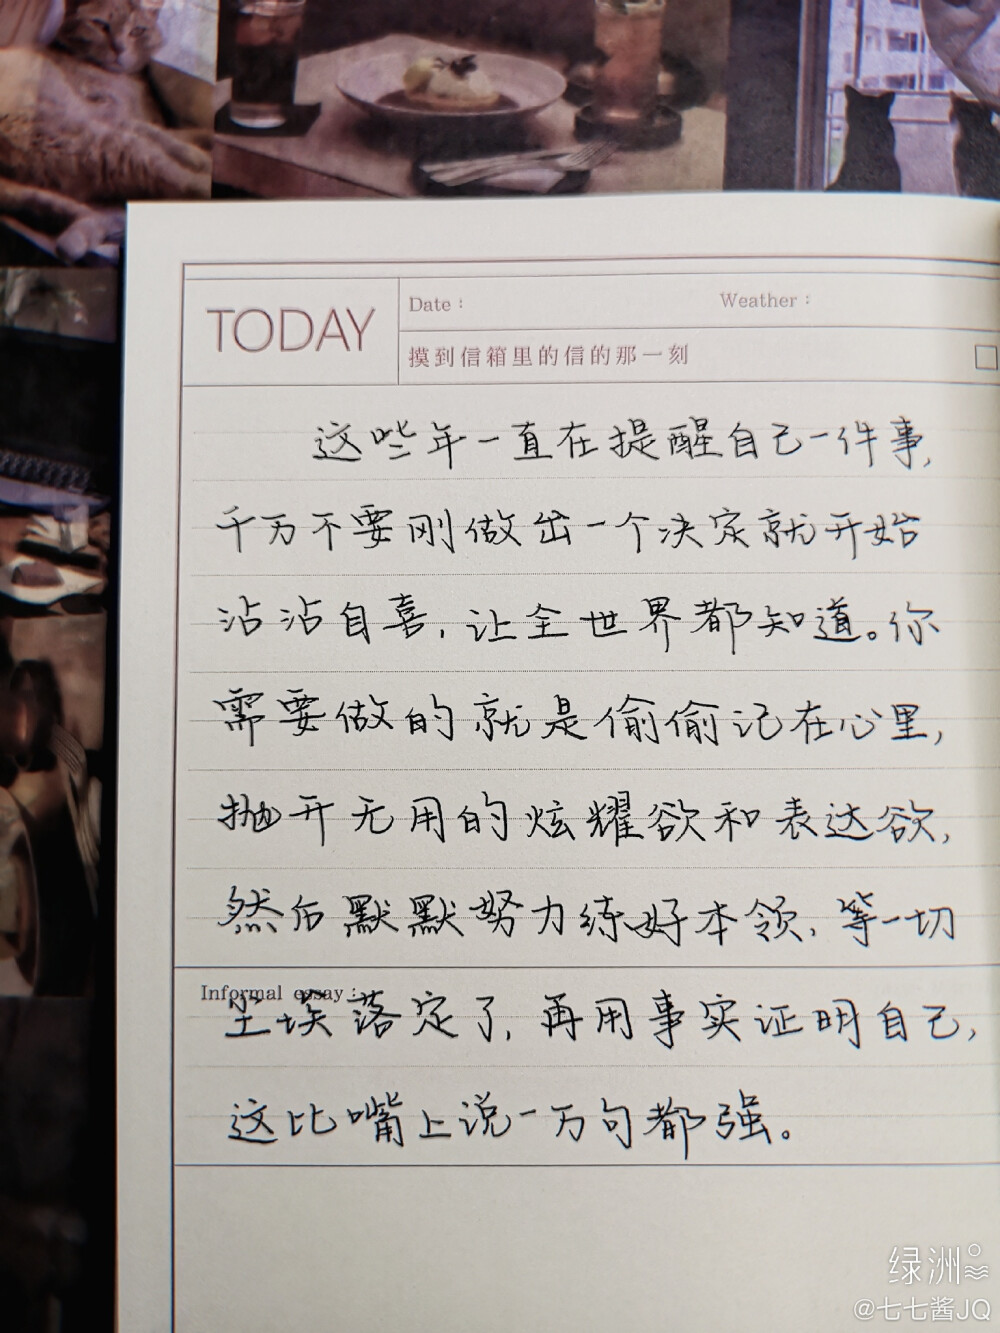 TODAY
Date：
Weather：
摸到信箱里的信的那一刻
这些年一直在提醒自己一件事，
千万不要刚做出一个决定就开始
沾沾自喜，让全世界都知道。你
需要做的就是偷偷记在心里，
抛开无用的炫耀欲和表达欲，
然后默默努力练好本领，等一切
Informal essay：
尘埃落定了，再用事实证明自己，
这比嘴上说一万句都强。
绿洲
@七七酱JQ